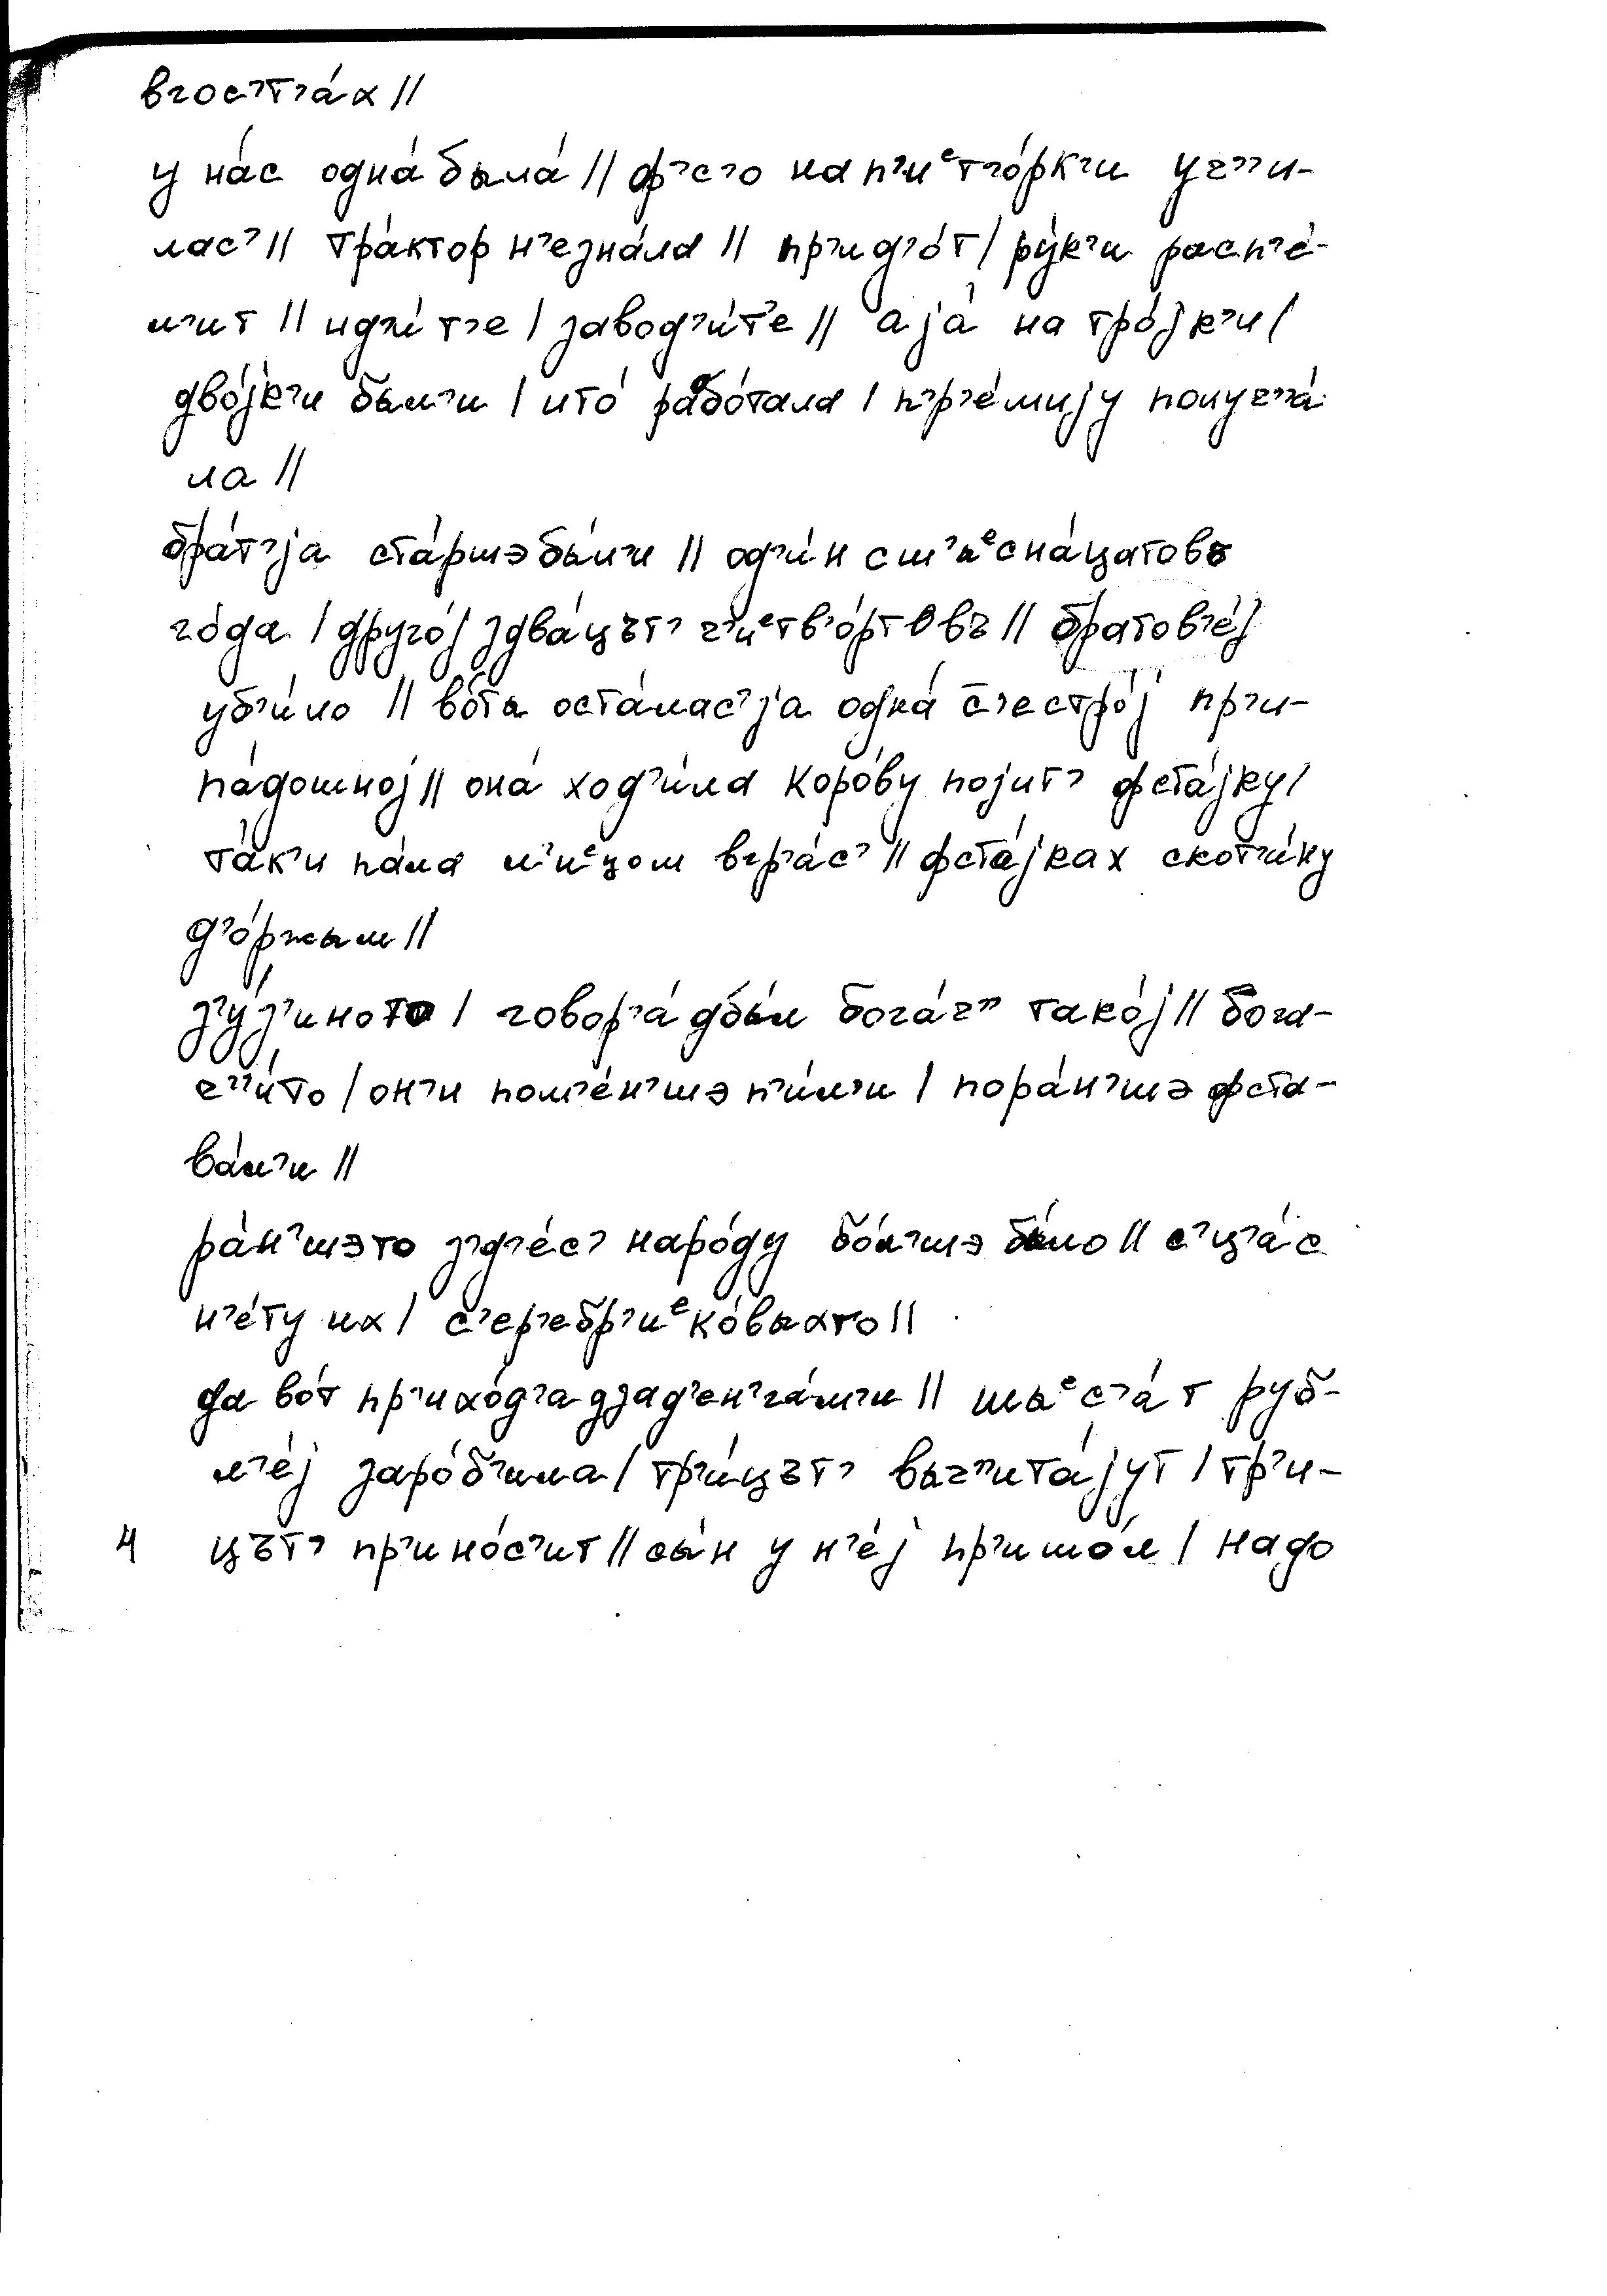 вгос’т’а́х //
у на́с одна́ была́ // ф’с’о на п’иᵉт’о́рк’и уч’’и-
лас’ // тра́ктор н’езна́ла // пр’ид’о́т / ру́к’и расп’е́-
л’ит // ид’и́т’е / завод’и́т’е // а jа́ на тро́jк’и /
дво́jк’и был’и / што́ рабо́тала / п’р’е́миjу получ’’а́
ла //
бра́т’jа ста́ршэ бы́л’и // од’и́н сшыᵉсна́цатовъ
го́да / друго́j здва́цът’ ч’’иᵉтв’о́ртовъ // братов’е́j
уб’и́ло // во́тъ оста́лас’jа одна́ с̄’естро́j пр’и-
па́дошноj // она́ ход’и́ла коро́ву поjит’ фста́jку /
та́к’и па́ла л’иᵉцом вгр’а́с’ // фста́jках скот’и́ну
д’о́ржым //
з’у́з’иното / говор’а́дбы́л бога́ч’’ тако́j // бога-
ч’’и́то / он’и пом’е́н’шэ п’и́л’и / пора́н’шэ фста-
ва́л’и //
ра́н’шэто з’д’е́с’ наро́ду бо́л’шэ бы́ло // с’ц’а́с
н’е́ту их / с’ер’ебр’иᵉко́выхто //
да во́т пр’ихо́д’а дзад’ен’га́м’и // шыᵉс’а́т руб-
л’е́j заро́б’ила / тр’и́цът’ выч’’ита́jут / тр’и-
4 цът’ пр’ино́с’ит // сы́н у н’е́j пр’ишо́л / надо